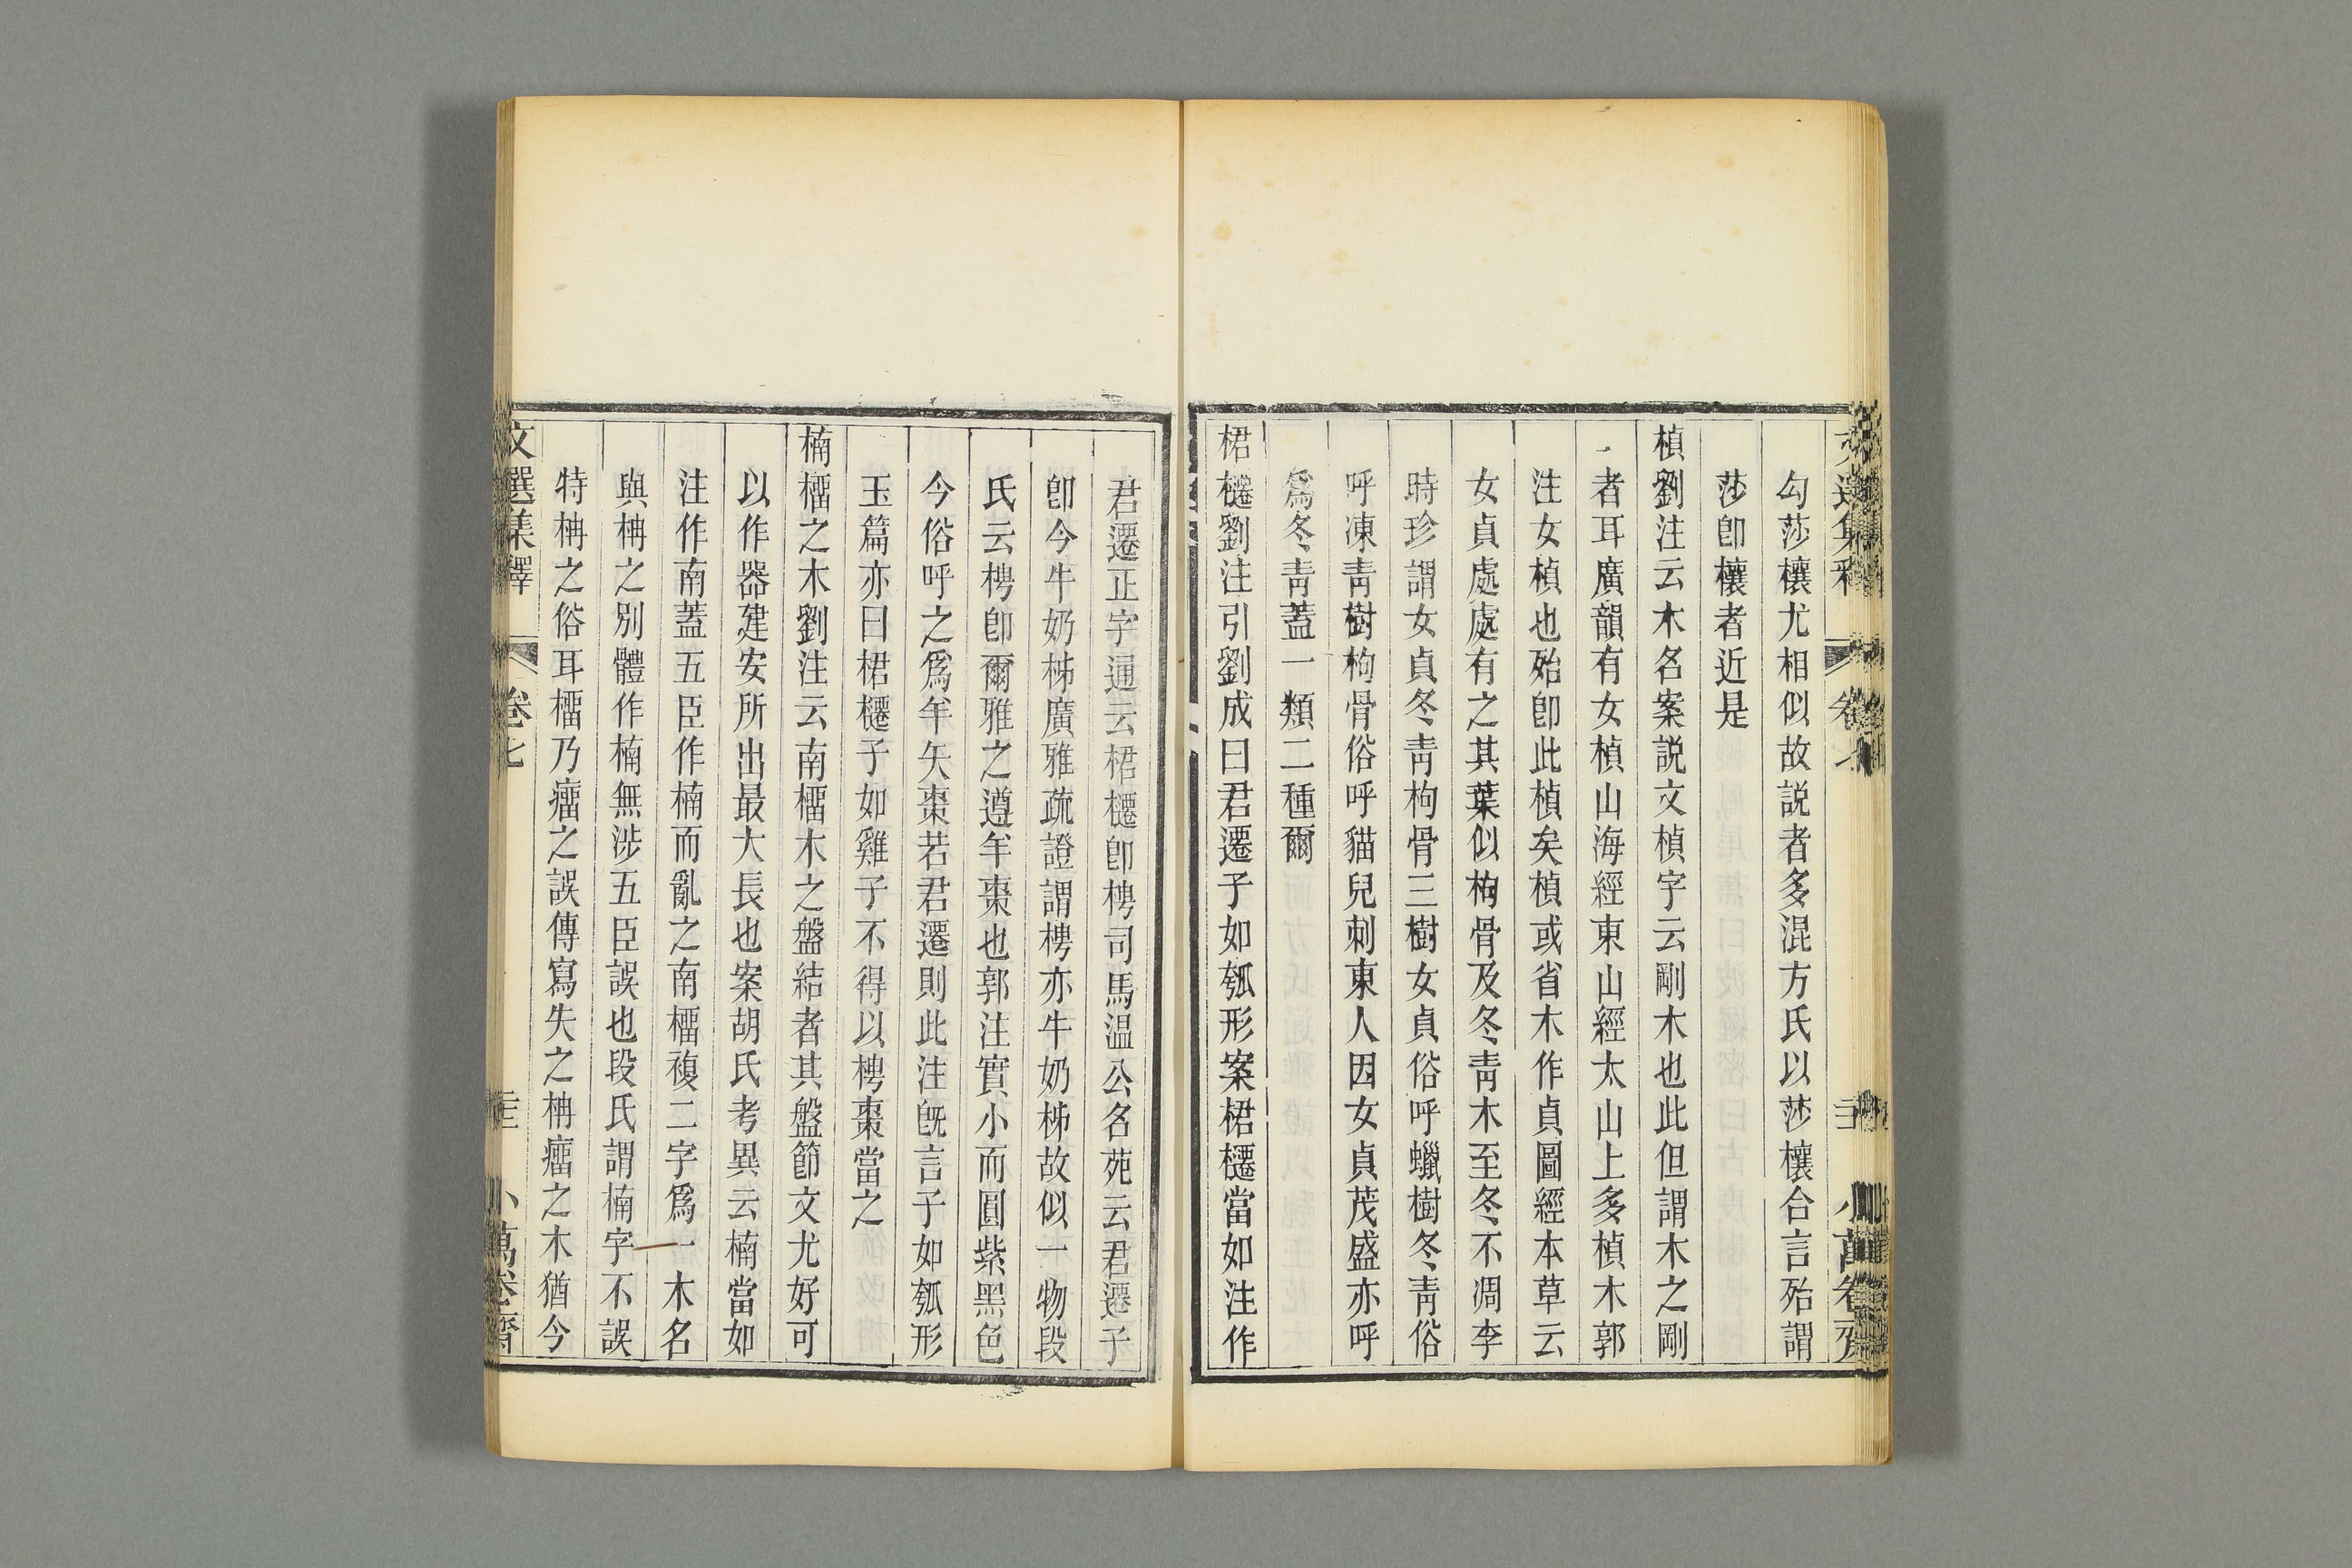 勾莎欀尤相似故説者多混方氏以莎欀合言殆謂
莎卽欀者近是
楨劉注云木名案説文楨字云剛木也此但謂木之剛
者耳廣韻有女楨山海經東山經太山上多楨木郭
注女楨也殆卽此楨矣楨或省木作貞圖經本草云
女貞處處有之其葉似枸骨及冬青木至冬不凋李
時珍謂女貞冬青枸骨三樹女貞俗呼蠟樹冬青俗
呼凍青樹枸骨俗呼貓兒刺東人因女貞茂盛亦呼
爲冬青蓋一類二種爾
桾櫏劉注引劉成曰君遷子如瓠形案桾櫏當如注作
君遷正字通云桾櫏卽梬司馬温公名苑云君遷子
卽今牛奶柹廣雅疏證謂梬亦牛奶柹故似一物段
氏云梬卽爾雅之遵羊棗也郭注實小而圓紫黑色
今俗呼之爲羊矢棗若君遷則此注旣言子如瓠形
玉篇亦曰桾櫏子如雞子不得以梬棗當之
楠榴之木劉注云南榴木之盤結者其盤節文尤好可
以作器建安所出最大長也案胡氏考異云楠當如
注作南蓋五臣作楠而亂之南榴複二字爲一木名
與柟之別體作楠無涉五臣誤也段氏謂楠字不誤
特柟之俗耳榴乃瘤之誤傳寫失之柟瘤之木猶今
文選集釋 卷七 小萬卷齋